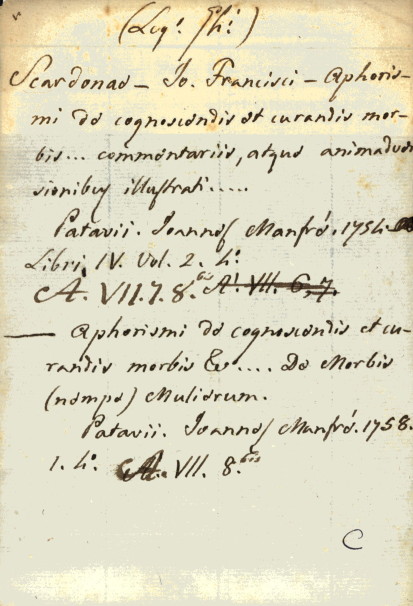 (Leg^t. Gh^i.)
Scardonae – Io. Francisci – Aphoris-
mi de cognoscendis et curandis mor-
bis... commentariis, atque animadver
sionibus illustrati.....
Patavii. Joannes Manfré. 1754.
Libri IV. Vol. 2. 4°
A. VII. 7. 8.bis A. VII. 6,7.
— Aphorismi de cognoscendis et cu-
randis morbis &.... De Morbis
(nempe) Mulierum.
Patavii. Joannes Manfré. 1758.
1. 4° A. VII. 8.bis
C